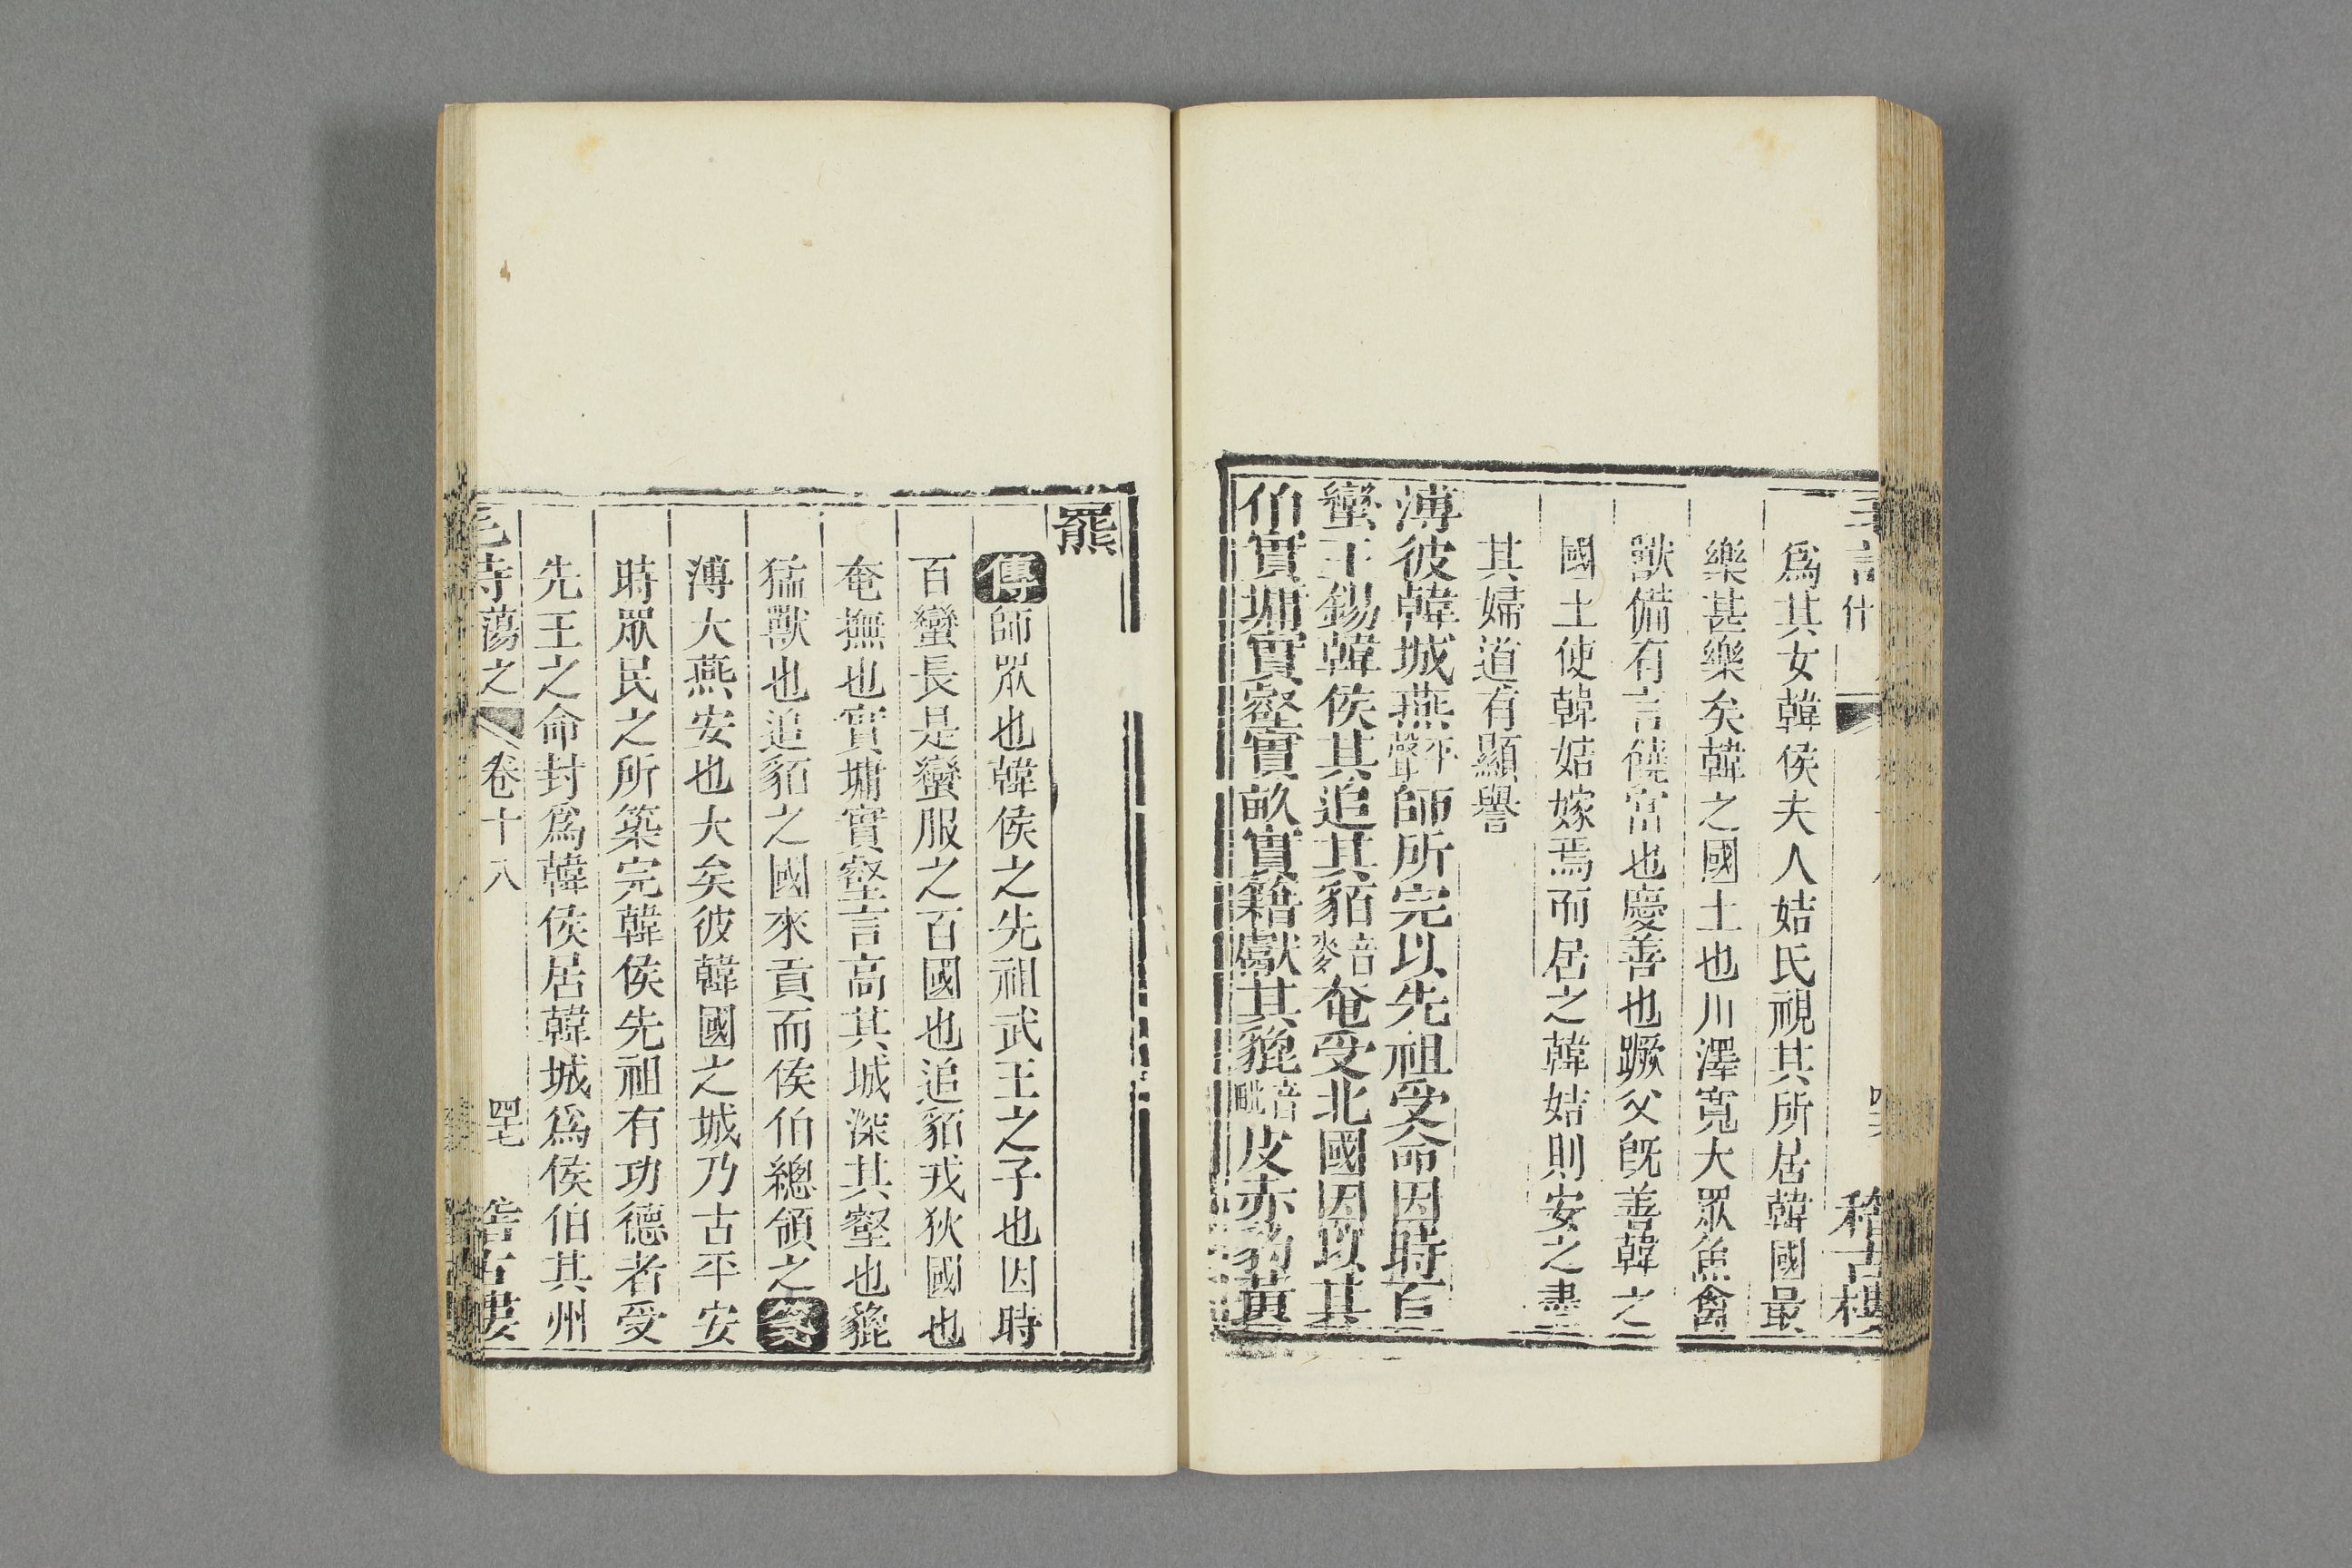 稽古樓
爲其女韓侯夫人姞氏視其所居韓國最
樂甚樂矣韓之國土也川澤寬大眾魚禽
獸備有言饒富也慶善也蹶父旣善韓之
國土使韓姞嫁焉而居之韓姞則安之盡
其婦道有顯譽
溥彼韓城燕平聲師所完以先祖受命因時百
蠻王錫韓侯其追其貊音麥奄受北國因以其
伯實墉實壑實畝實籍獻其貔音毗皮赤豹黃
羆
傳師眾也韓侯之先祖武王之子也因時
百蠻長是蠻服之百國也追貊戎狄國也
奄撫也實墉實壑言高其城深其壑也貔
猛獸也追貊之國來貢而侯伯總領之箋
溥大燕安也大矣彼韓國之城乃古平安
時眾民之所築完韓侯先祖有功德者受
先王之命封爲韓侯居韓城爲侯伯其州
毛詩蕩之 卷十八 四七 稽古樓